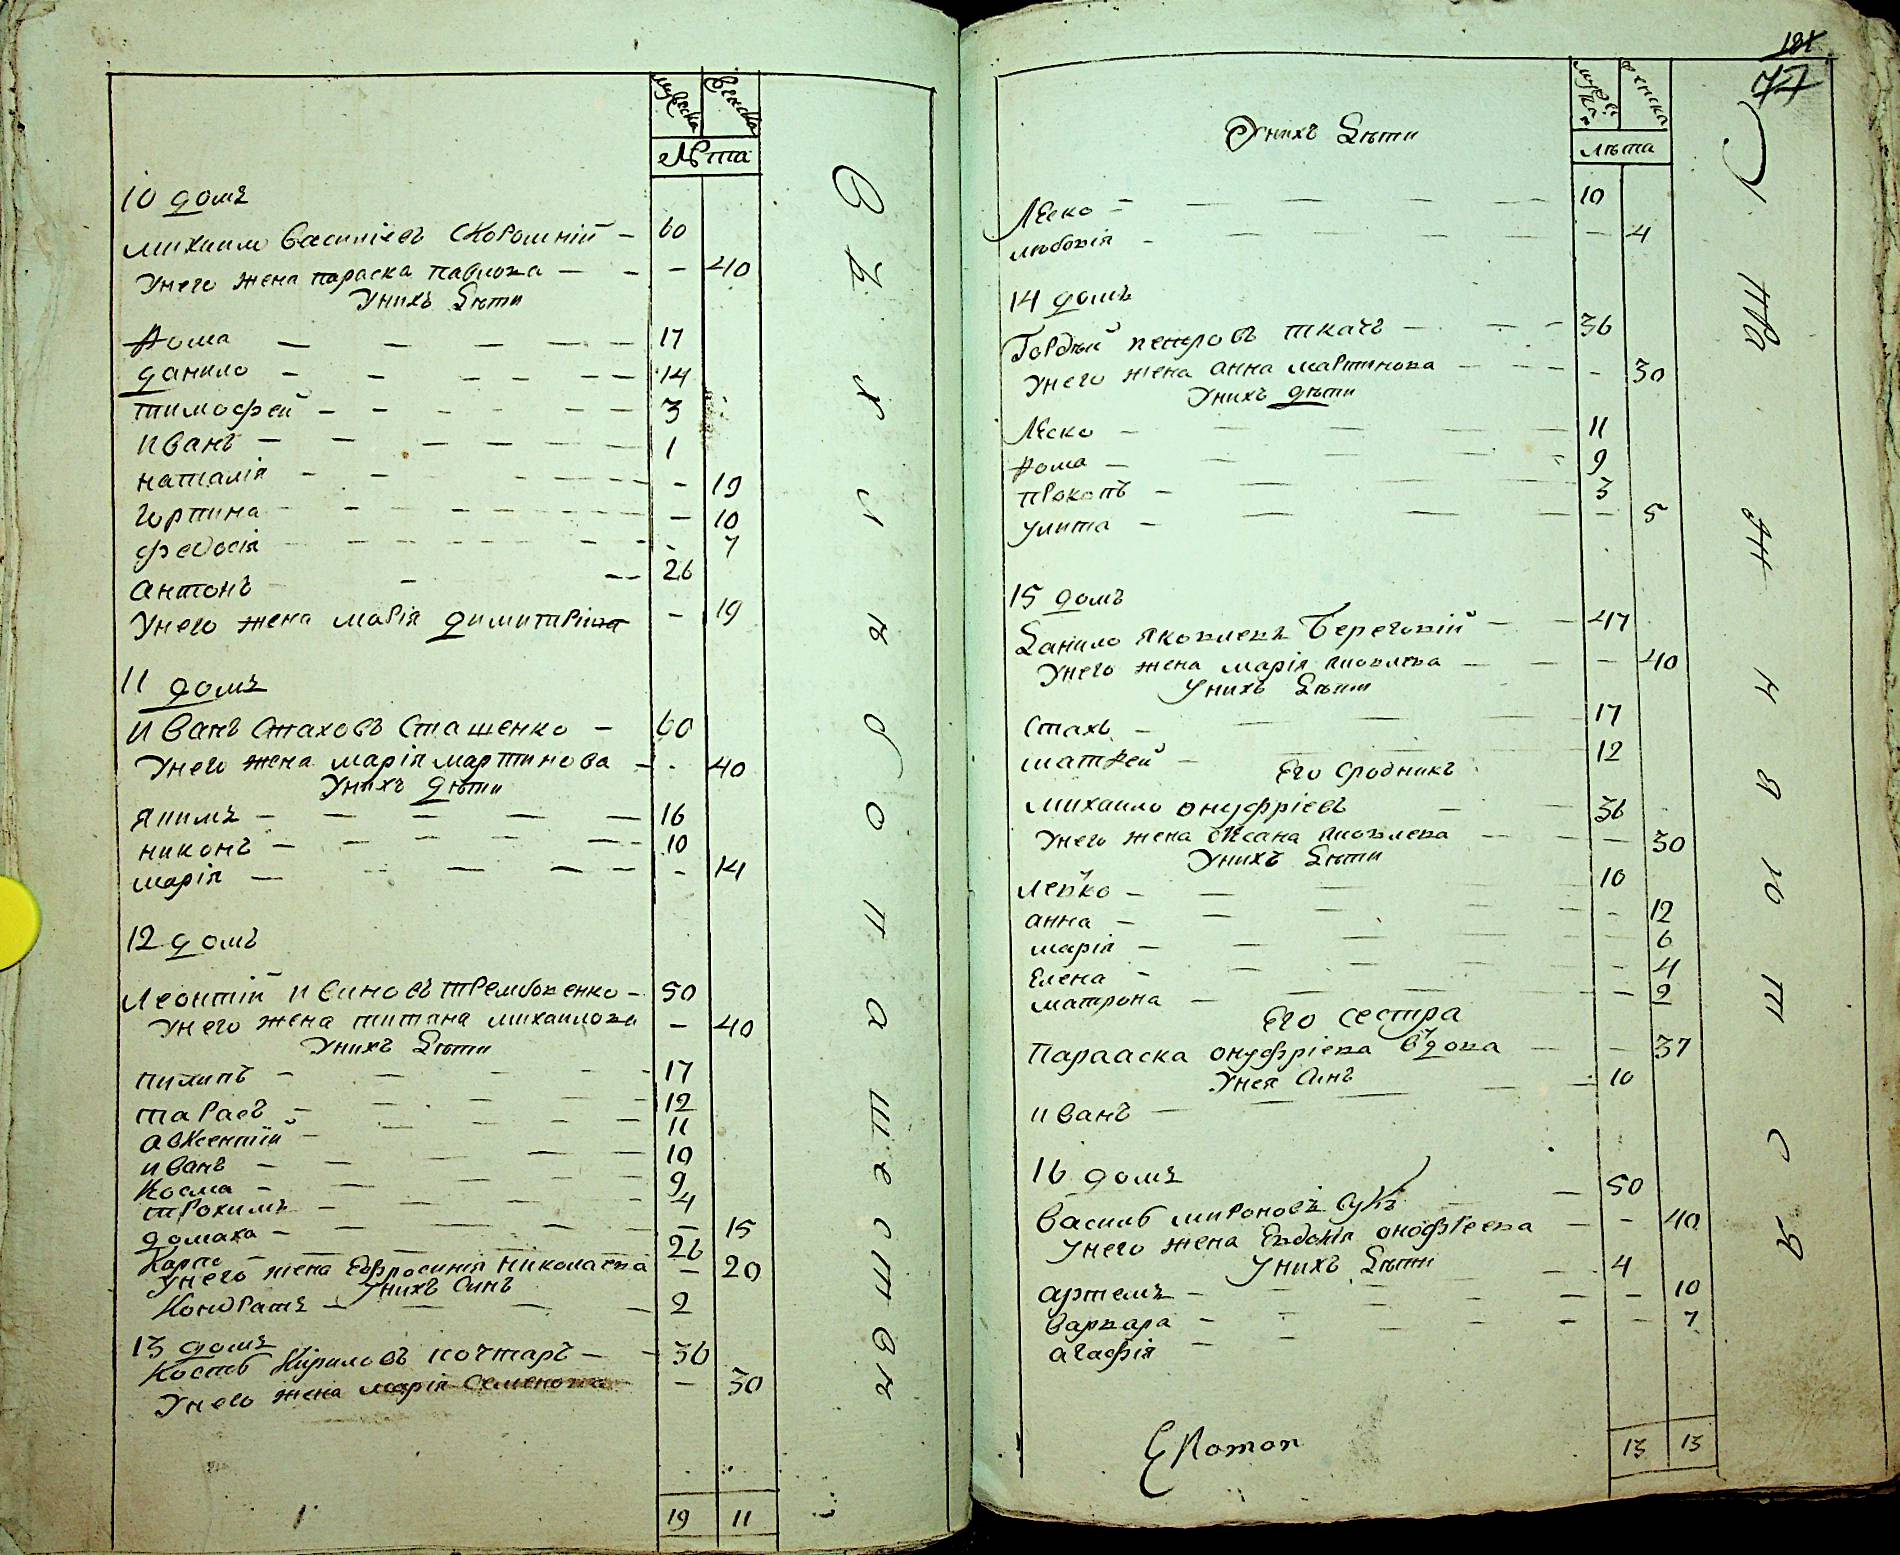 мужеска женска
Лѣта
10 домъ
михаило василіевъ скорошній – 60
Унего жена параска павлова – – 40
Унихъ дѣти
Ѳома 17
данило 14
тимофей 3
иванъ 1
наталія – 19
горпина – 10
федосія – 7
антонъ 26
Унего жена марія димитріева – 19
11 домъ
иванъ стаховъ сташенко – 60
Унего жена марія мартинова – 40
Унихъ дѣти
якимъ 16
никонъ 10
марія – 14
12 домъ
Леонтій 50
Унего жена татіана михаилова – 40
Унихъ дѣти
пилипъ 17
тарасъ 12
авксентій 11
иванъ 10
Косма 9
трохимъ 4
домаха – 15
Карпо 26
Унего жена Ефросинія николаева – 20
Унихъ синъ
Кондратъ 2
13 домъ
Костъ Кириловъ почтаръ – 36
Унего жена марія семенова – 30
19 11
181
77
мужеска женска
Лѣта
Унихъ дѣти
Леско 10
любовія – 4
14 домъ
Гордѣй петровъ ткачъ 36
Унего жена анна мартинова – 30
Унихъ дѣти
Леско 11
Ѳома 9
прокопъ 3
улита – 5
15 домъ
данило яковлевъ Береговій 47
Унего жена марія яковлева – 40
Унихъ дѣти
стахъ 17
матѳей 12
Его сродникъ
михаило онуфріевъ 36
Унего жена оксана яковлева – 30
Унихъ дѣти
левко 10
анна – 12
марія – 6
Елена – 4
матрона – 2
Его сестра
Парааска онуфріева вдова – 37
Унея синъ 10
иванъ
16 домъ
василь мироновъ сукъ 50
Унего жена Евдокія онофріева – 40
Унихъ дѣти
артемъ 4
варвара – 10
агафія – 7
13 13